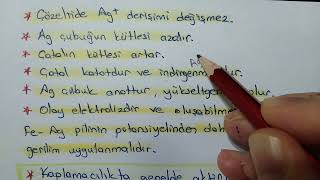 * Çözeltide Ag⁺ derişimi değişmez.
* Ag çubuğun kütlesi azalır.
* Çatalın kütlesi artar.
* Çatal katottur ve indirgenme olur.
* Ag çubuk anottur, yükseltgenme olur.
* Olay elektrolizdir ve oluşabilme
Fe-Ag pilinin potansiyelinden daha
gerilim uygulanmalıdır.
* Kaplamacılıkta genelde aktif